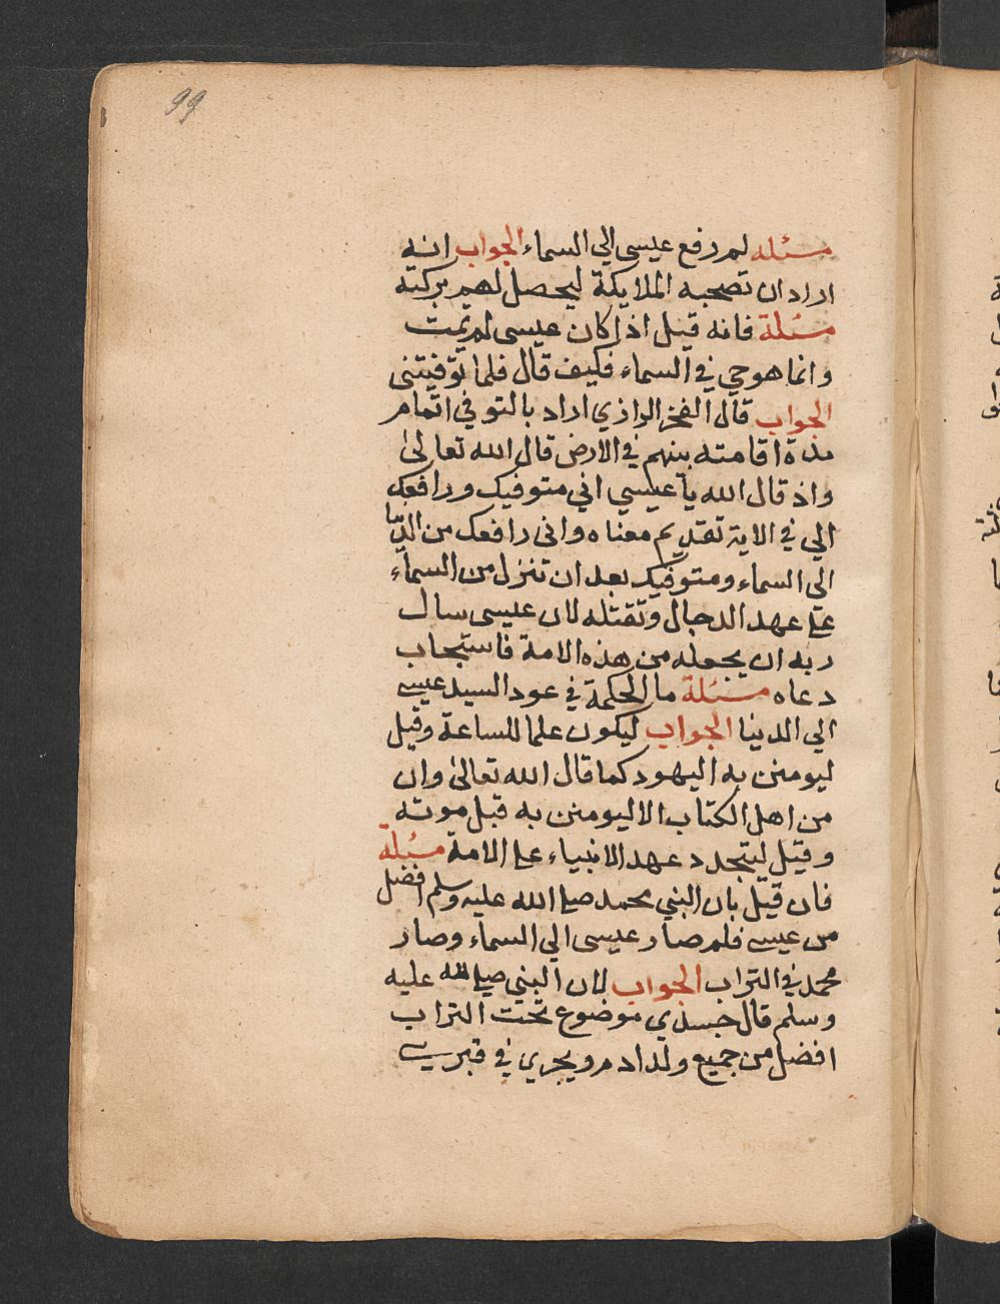 99
مسئله لم رفع عيسى الى السماء الجواب انه
اراد ان تصحبه الملايكة ليحصل لهم بركته
مسئلة فانه قيل اذا كان عيسى لم يمت
وانما هو حي في السماء فكيف قال فلما توفيتنى
الجواب قال الفخر الرازي اراد بالتوفي اتمام
مدة اقامته بينهم في الارض قال الله تعالى
واذ قال الله يا عيسي اني متوفيك ورافعك
الي في الاية تقديم معناه واني رافعك من الدنيا
الى السماء ومتوفيك بعد ان تنزل من السماء
على عهد الدجال وتقتله لان عيسى سال
ربه ان يجعله من هذه الامة فاستجاب
دعاه مسئلة ما الحكمة في عود السيد عيسى
الي الدنيا الجواب ليكون علما للساعة وقيل
ليومنن به اليهود كما قال الله تعالى وان
من اهل الكتاب الا ليومنن به قبل موته
وقيل ليتجدد عهد الانبياء على الامة مسئلة
فان قيل بان النبي محمد صلى الله عليه وسلم افضل
من عيسى فلم صار عيسى الي السماء وصار
محمد في التراب الجواب لان النبي صلى الله عليه
وسلم قال جسدي موضوع تحت التراب
افضل من جميع ولد ادم ويجري في قبري